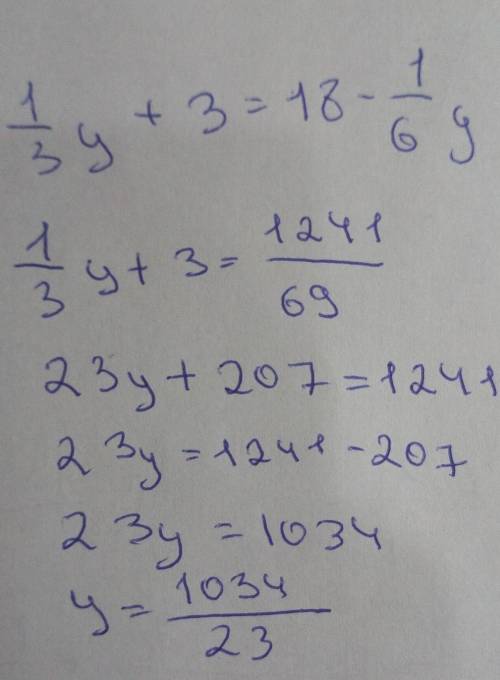 1/3 y + 3 = 18 - 1/6 y
1/3 y + 3 = 1241/69
23y + 207 = 1241
23y = 1241 - 207
23y = 1034
y = 1034/23